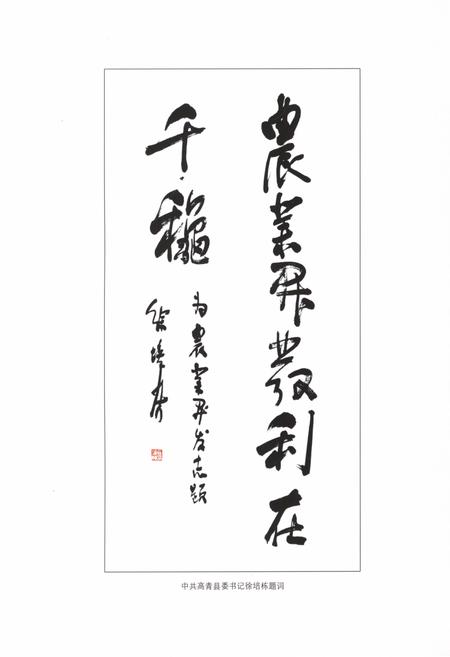 農業開發利在
千穐
为農業开发志题
徐培栋
中共高青县委书记徐培栋题词